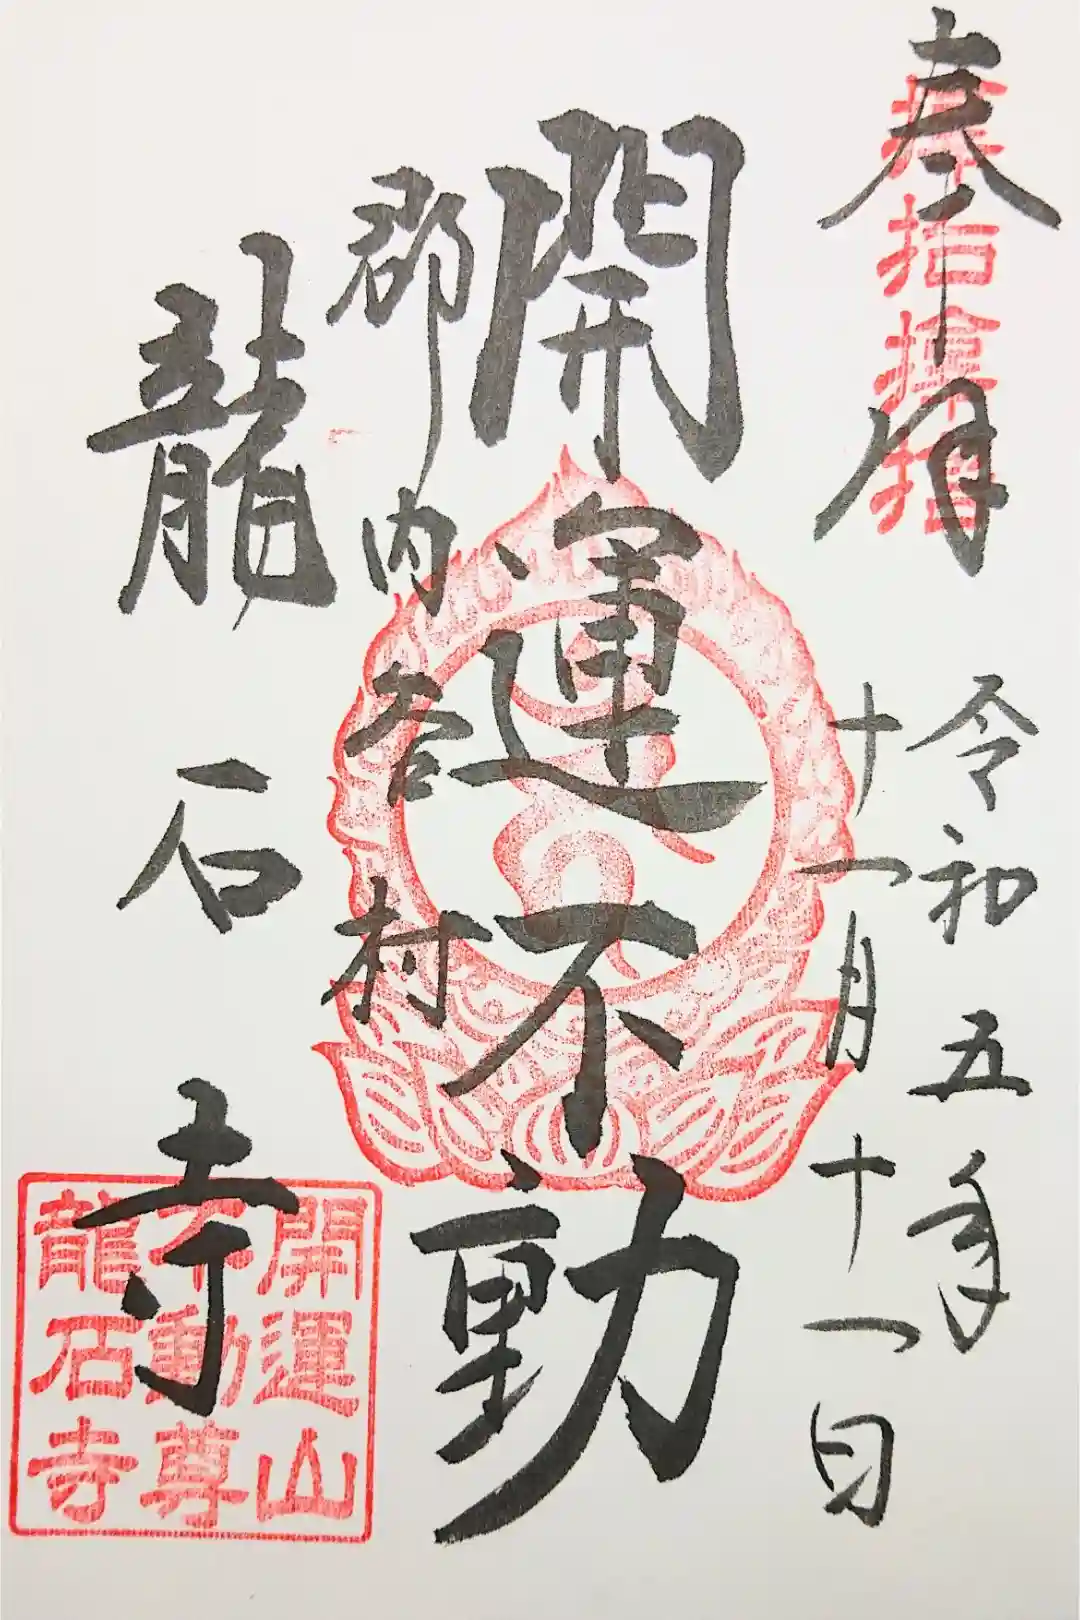 奉
令和五年
十一月十一日
開運不動
郡内谷村
龍石寺
開運山
不動尊
龍石寺